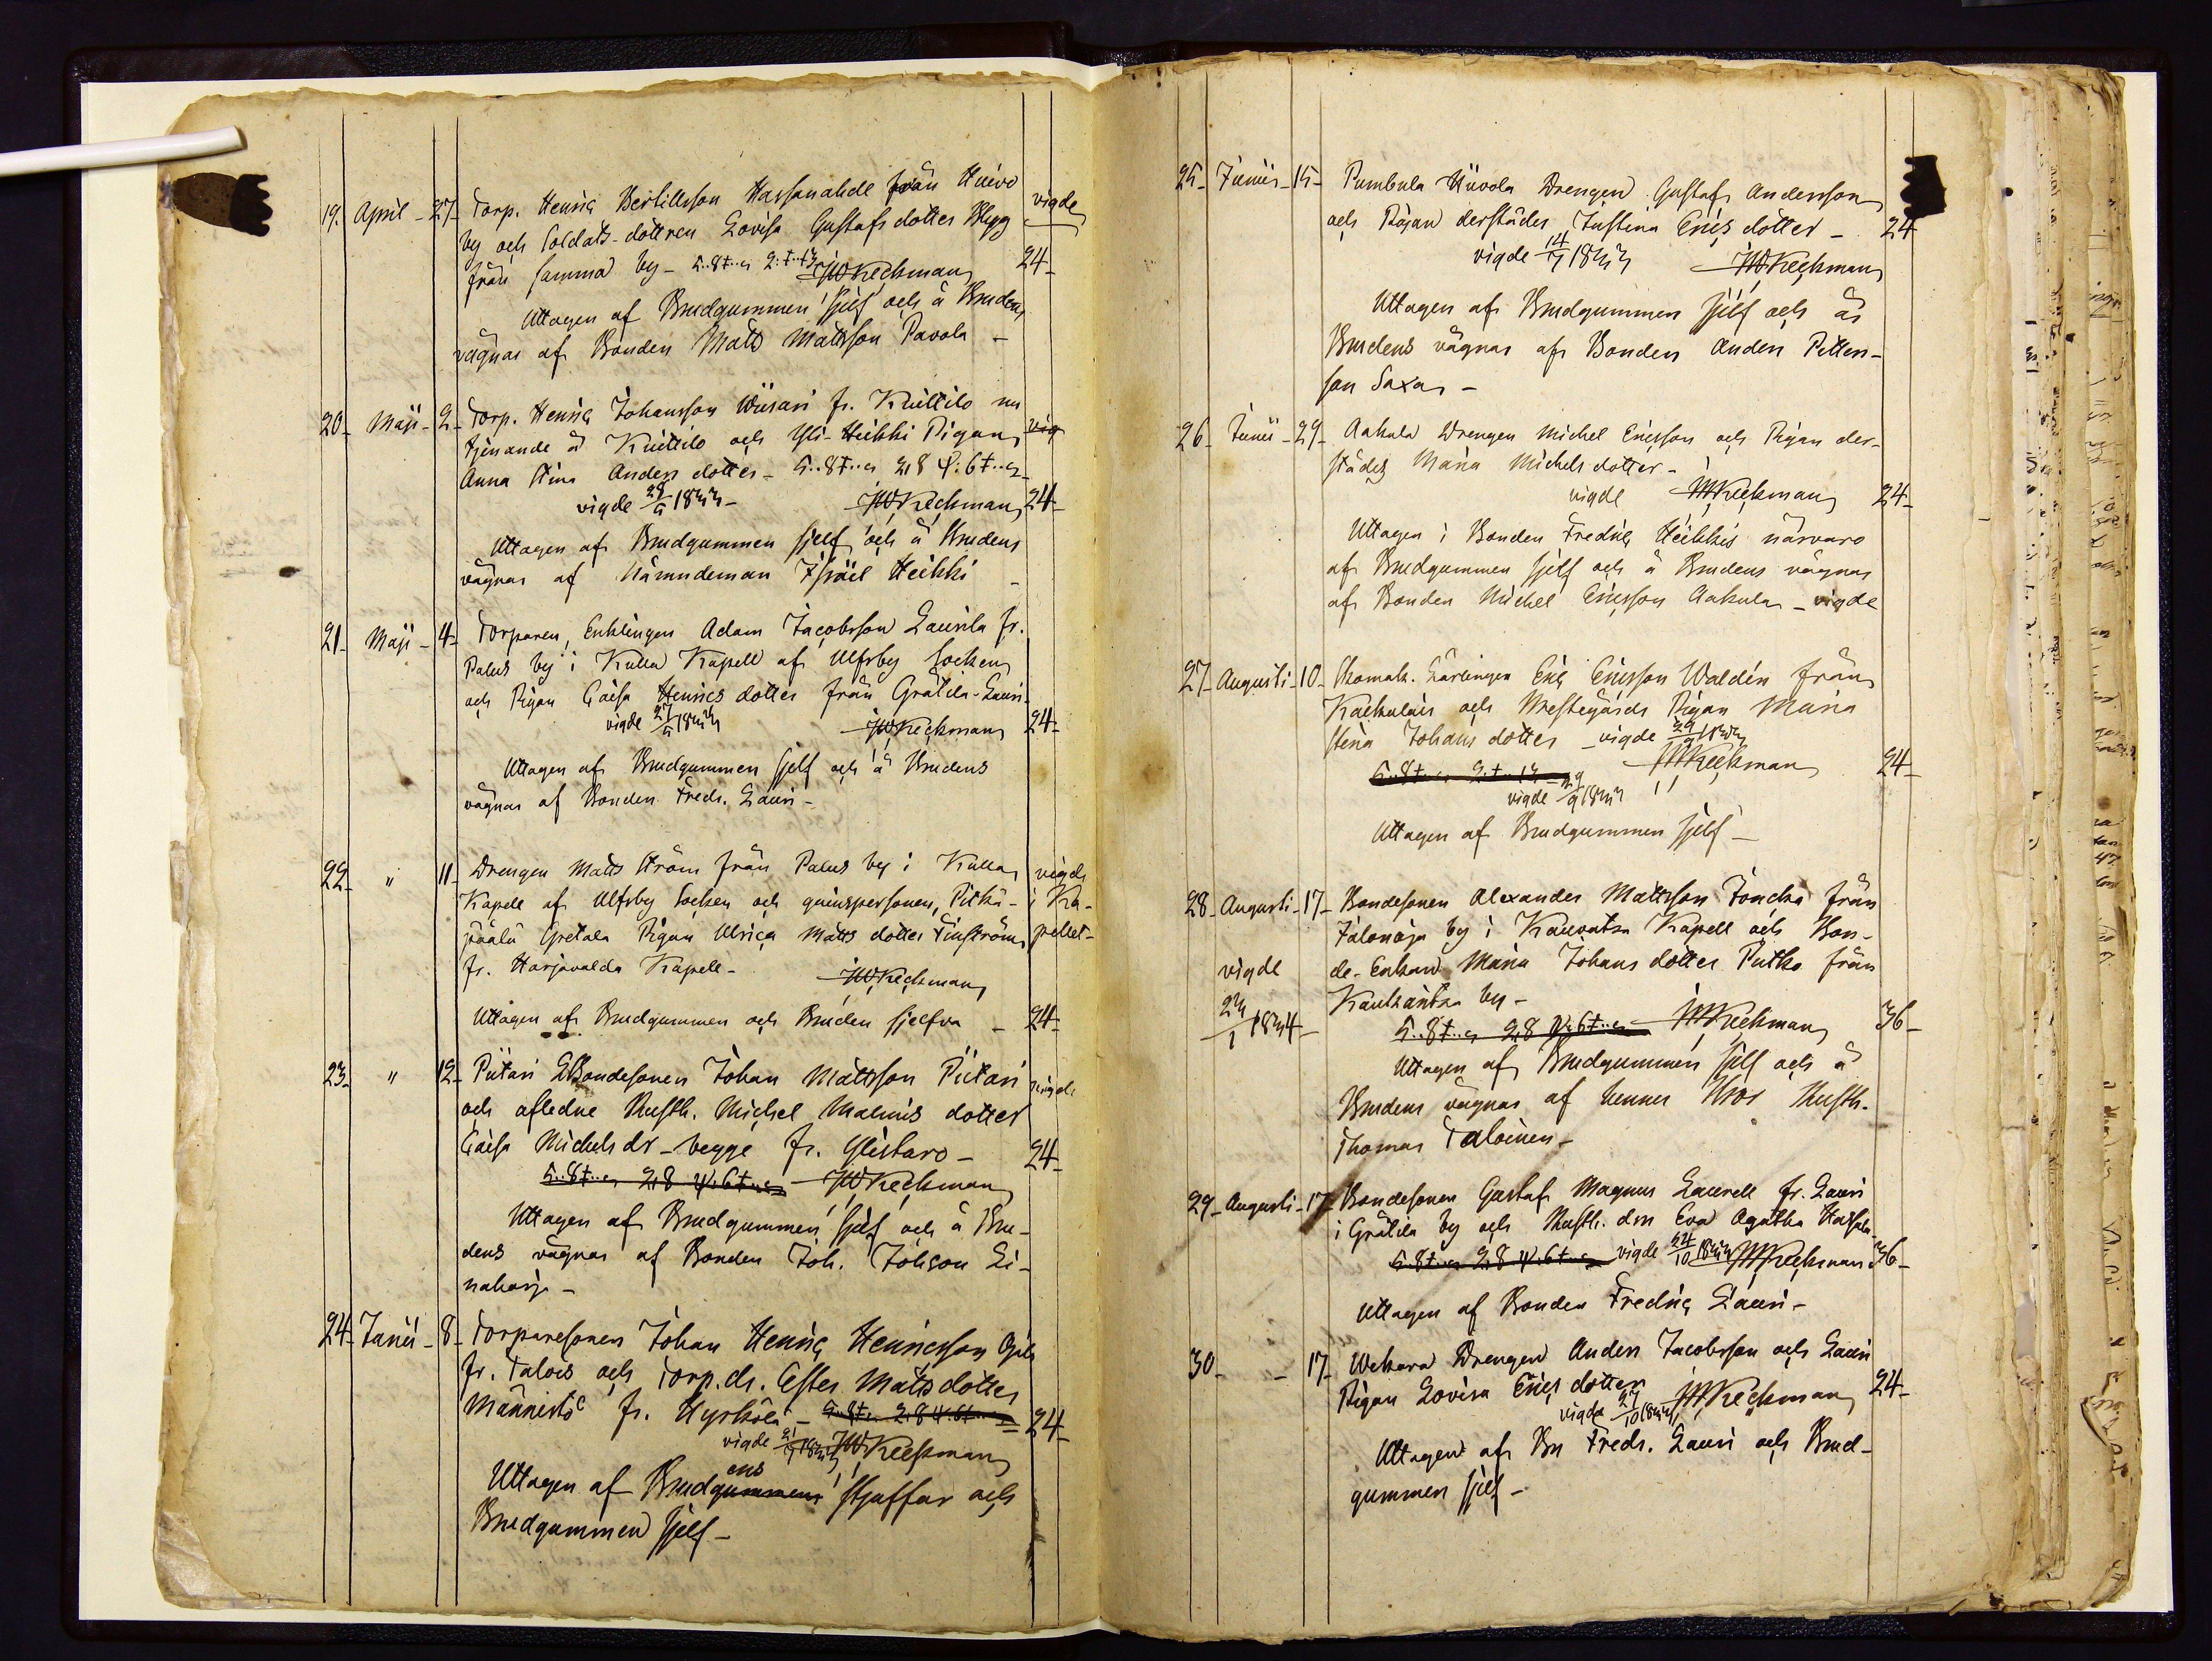 19. April - 27 - Torp. Henric Bertillsson Hassanahde från Huivo vigde
by och Soldats-dottren Lovisa Gustafs dotter Blygg
från samma by - 24 -
JWKeckman
Uttagen af Brudgummen sjelf och å Brudens
vägnar af Bonden Matts Mattsson Pavola -
20 - Maji - 2 - Torp. Henric Johansson Wiisari fr. Kiettilö nu
tjenande å Kiettilö och Yli-Heikki Pigan vig
Anna Stina Anders dotter -
vigde 29/ 1833 - JWKeckman 24 -
Uttagen af Brudgummen sjelf och å Brudens
vägnar af Nämndeman Israel Heikki -
21 - Maji - 4 - Torparen, Enklingen Adam Jacobsson Laurila fr.
Palus by i Kulla Kapell af Ulfsby Socken
och Pigan Caisa Henrics dotter från Gråtila-Lauri
vigde 27/ 1833 JWKeckman 24 -
Uttagen af Brudgummen sjelf och å Brudens
vägnar af Bonden Fredr. Lauri -
22 - " 11 - Drengen Matts Ström från Palus by i Kulla vigde
Kapell af Ulfsby Socken och qvinspersonen, Pitkä- i Ka-
päälä Gretala Pigan Ulrica Matts dotter Finström pellet -
fr. Harjavalda Kapell - JWKeckman
Uttagen af Brudgummen och Bruden sjelfva - 24 -
23 - " 12 - Piitari Bondesonen Johan Mattsson Piitari vigde
och afledne Rusth. Michel Malmis dotter
Caisa Michels dr - begge fr. Ylistaro - 24 -
JWKeckman
Uttagen af Brudgummen sjelf och å Bru-
dens vägnar af Bonden Joh. Johsson Li-
naharja -
24 - Junii - 8 - Torparesonen Johan Henric Henricsson
fr. Talois och Torp. dr. Ester Mattsdotter
Männistö fr. Hyrköli - 24 -
vigde 1833 JWKeckman
ens
Uttagen af Brudgummens stjuffar och
Brudgummen sjelf -
25 - Junii - 15 - Pumbula Uuvola Drengen Gustaf Andersson
och Pigan derstädes Justina Erics dotter - 24
vigde 14/7 1833 JWKeckman
Uttagen af Brudgummen sjelf och å
Brudens vägnar af Bonden Anders Petters-
son Saxa -
26 - Junii - 29 - Aakula Drengen Michel Ericsson och Pigan der-
städes Maria Michels dotter -
vigde JWKeckman 24 -
Uttagen i Bonden Fredric Heikkis närvaro
af Brudgummen sjelf och å Brudens vägnar
af Bonden Michel Ericsson Aakula - vigde
27 - Augusti - 10 - Skomak. Lärlingen Eric Ericsson Waldén från
Kackulais och Prestegårds Pigan Maria
Stina Johans dotter - vigde 29/9 1833
JWKeckman 24 -
vigde 29/9 1833
Uttagen af Brudgummen sjelf -
28 - Augusti - 17 - Bondesonen Alexander Mattsson Joncka från
Jalonoja by i Kauvatsa Kapell och Bon-
vigde de-Enkan Maria Johans dotter Putko från
Kankaantsa by -
1834 - JWKeckman 36 -
Uttagen af Brudgummen sjelf och å
Brudens vägnar af hennes Bror Rusth.
Thomas Taloinen -
29 - Augusti - 17 - Bondesonen Gustaf Magnus Laurell fr. Lauri
i Gråtila by och Rusth. drn Eva Agatha Hassala
vigde 24/10 1833 JWKeckman 36 -
Uttagen af Bonden Fredric Lauri -
30 - - 17 - Wekara Drengen Anders Jacobsson och Lauri
Pigan Lovisa Erics dotter 24 -
vigde 27/10 1833 JWKeckman
Uttagen af Bn Fredr. Lauri och Brud-
gummen sjelf -